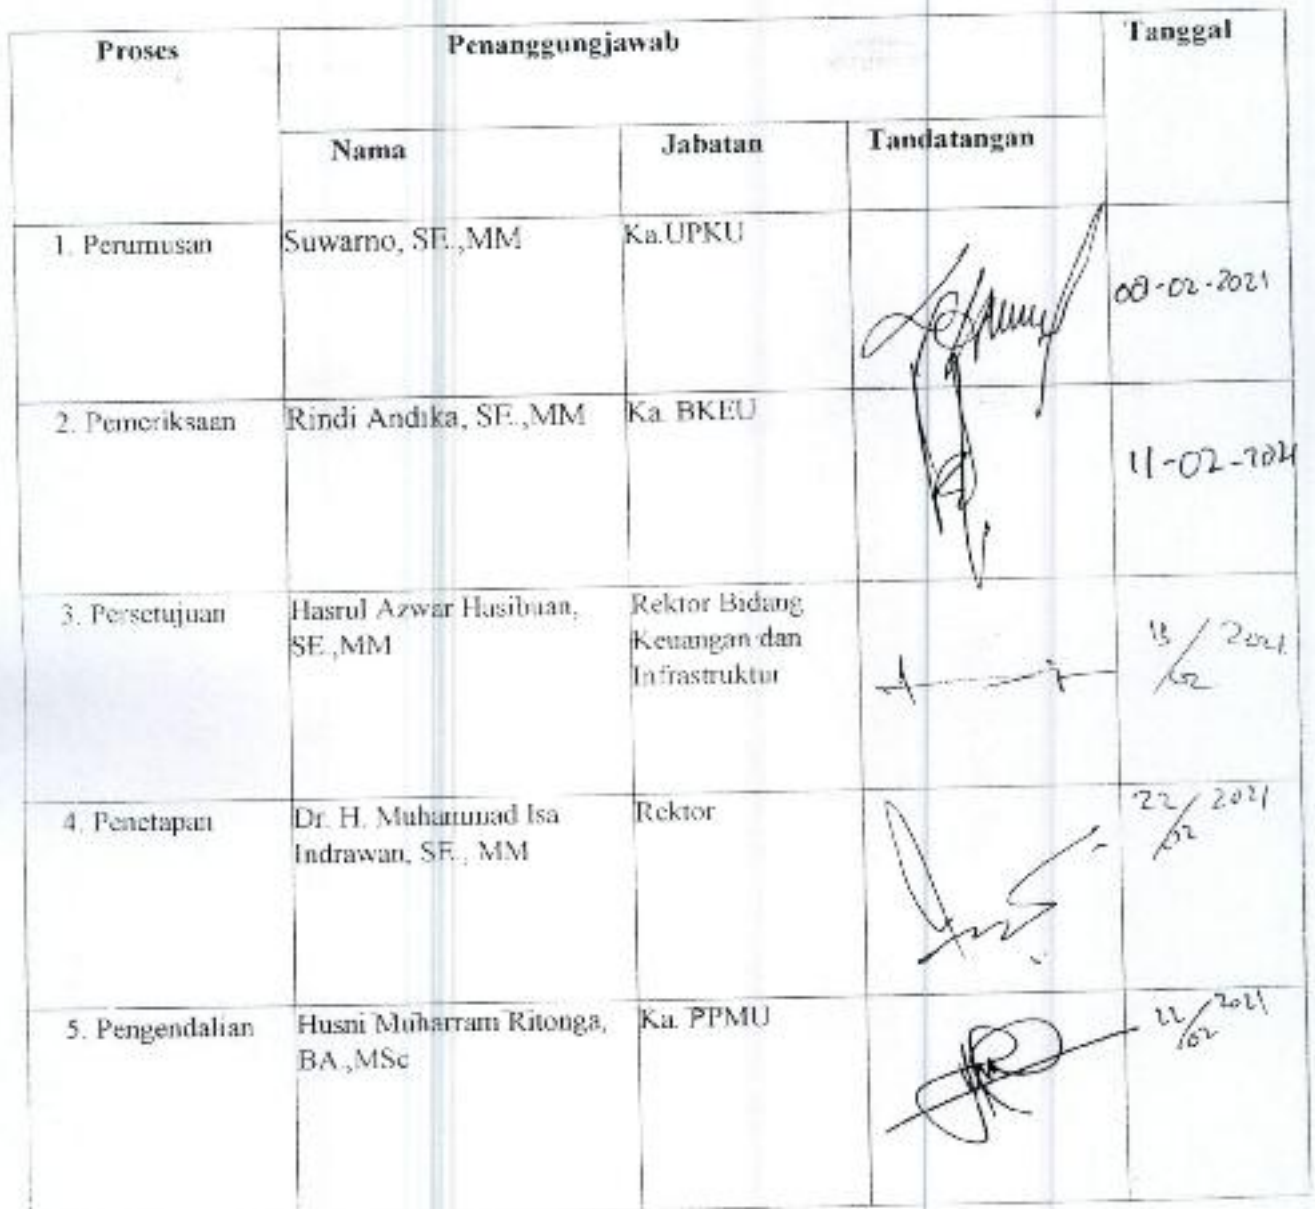 Proses Penanggungjawab Tanggal
Nama Jabatan Tandatangan
1. Perumusan Suwarno, SE.,MM Ka.UPKU 08-02-2021
2. Pemeriksaan Rindi Andika, SE.,MM Ka. BKEU 11-02-2021
3. Persetujuan Hasrul Azwar Hasibuan, Rektor Bidang 2021
SE.,MM Keuangan dan /02
Infrastruktur
4. Penetapan Dr. H. Muhammad Isa Rektor 22/02 2021
Indrawan, SE., MM
5. Pengendalian Husni Muharram Ritonga, Ka. PPMU 22/02 2021
BA.,MSc